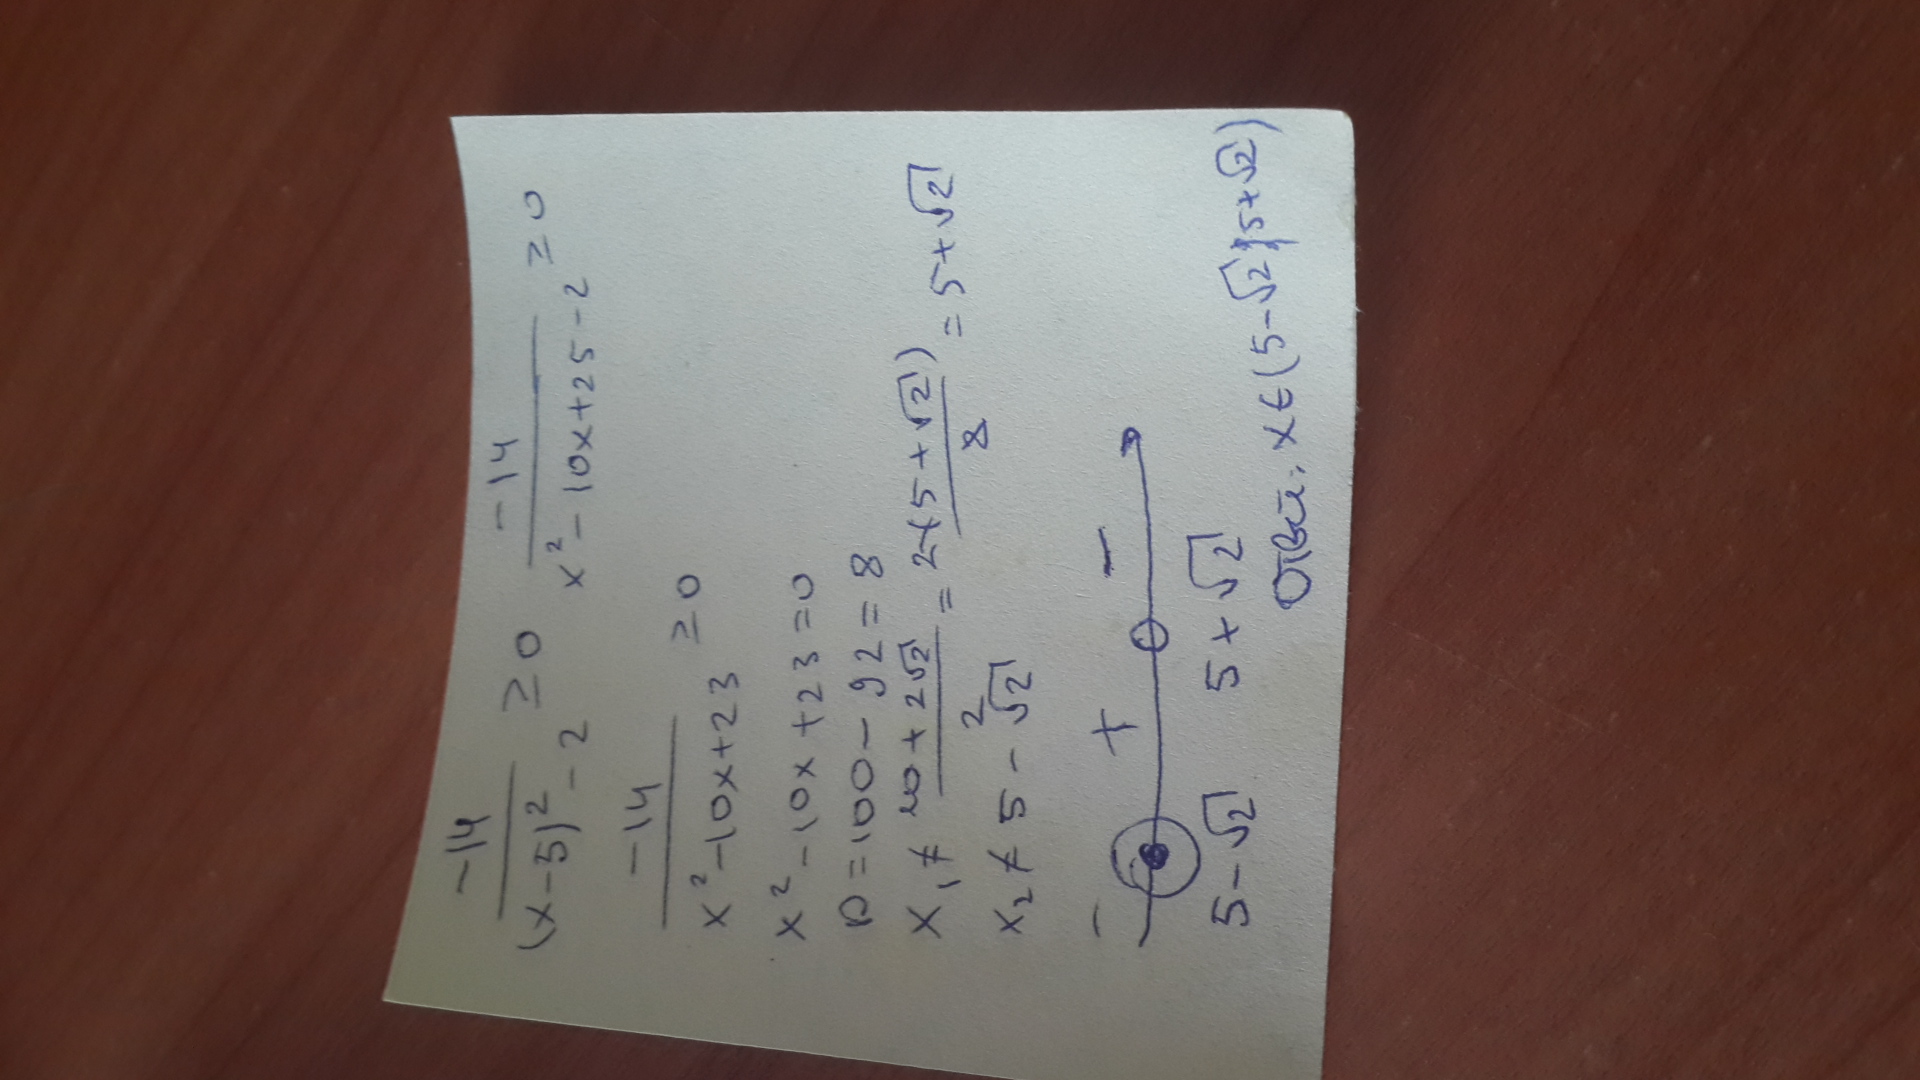 -14/((x-5)² - 2) ≥ 0   -14/(x² - 10x + 25 - 2) ≥ 0
-14/(x² - 10x + 23) ≥ 0
x² - 10x + 23 = 0
D = 100 - 92 = 8
x₁ ≠ (10 + 2√2)/2 = 2(5 + √2)/8 = 5 + √2
x₂ ≠ 5 - √2
- + -
5 - √2   5 + √2
Ответ: x ∈ (5 - √2; 5 + √2)